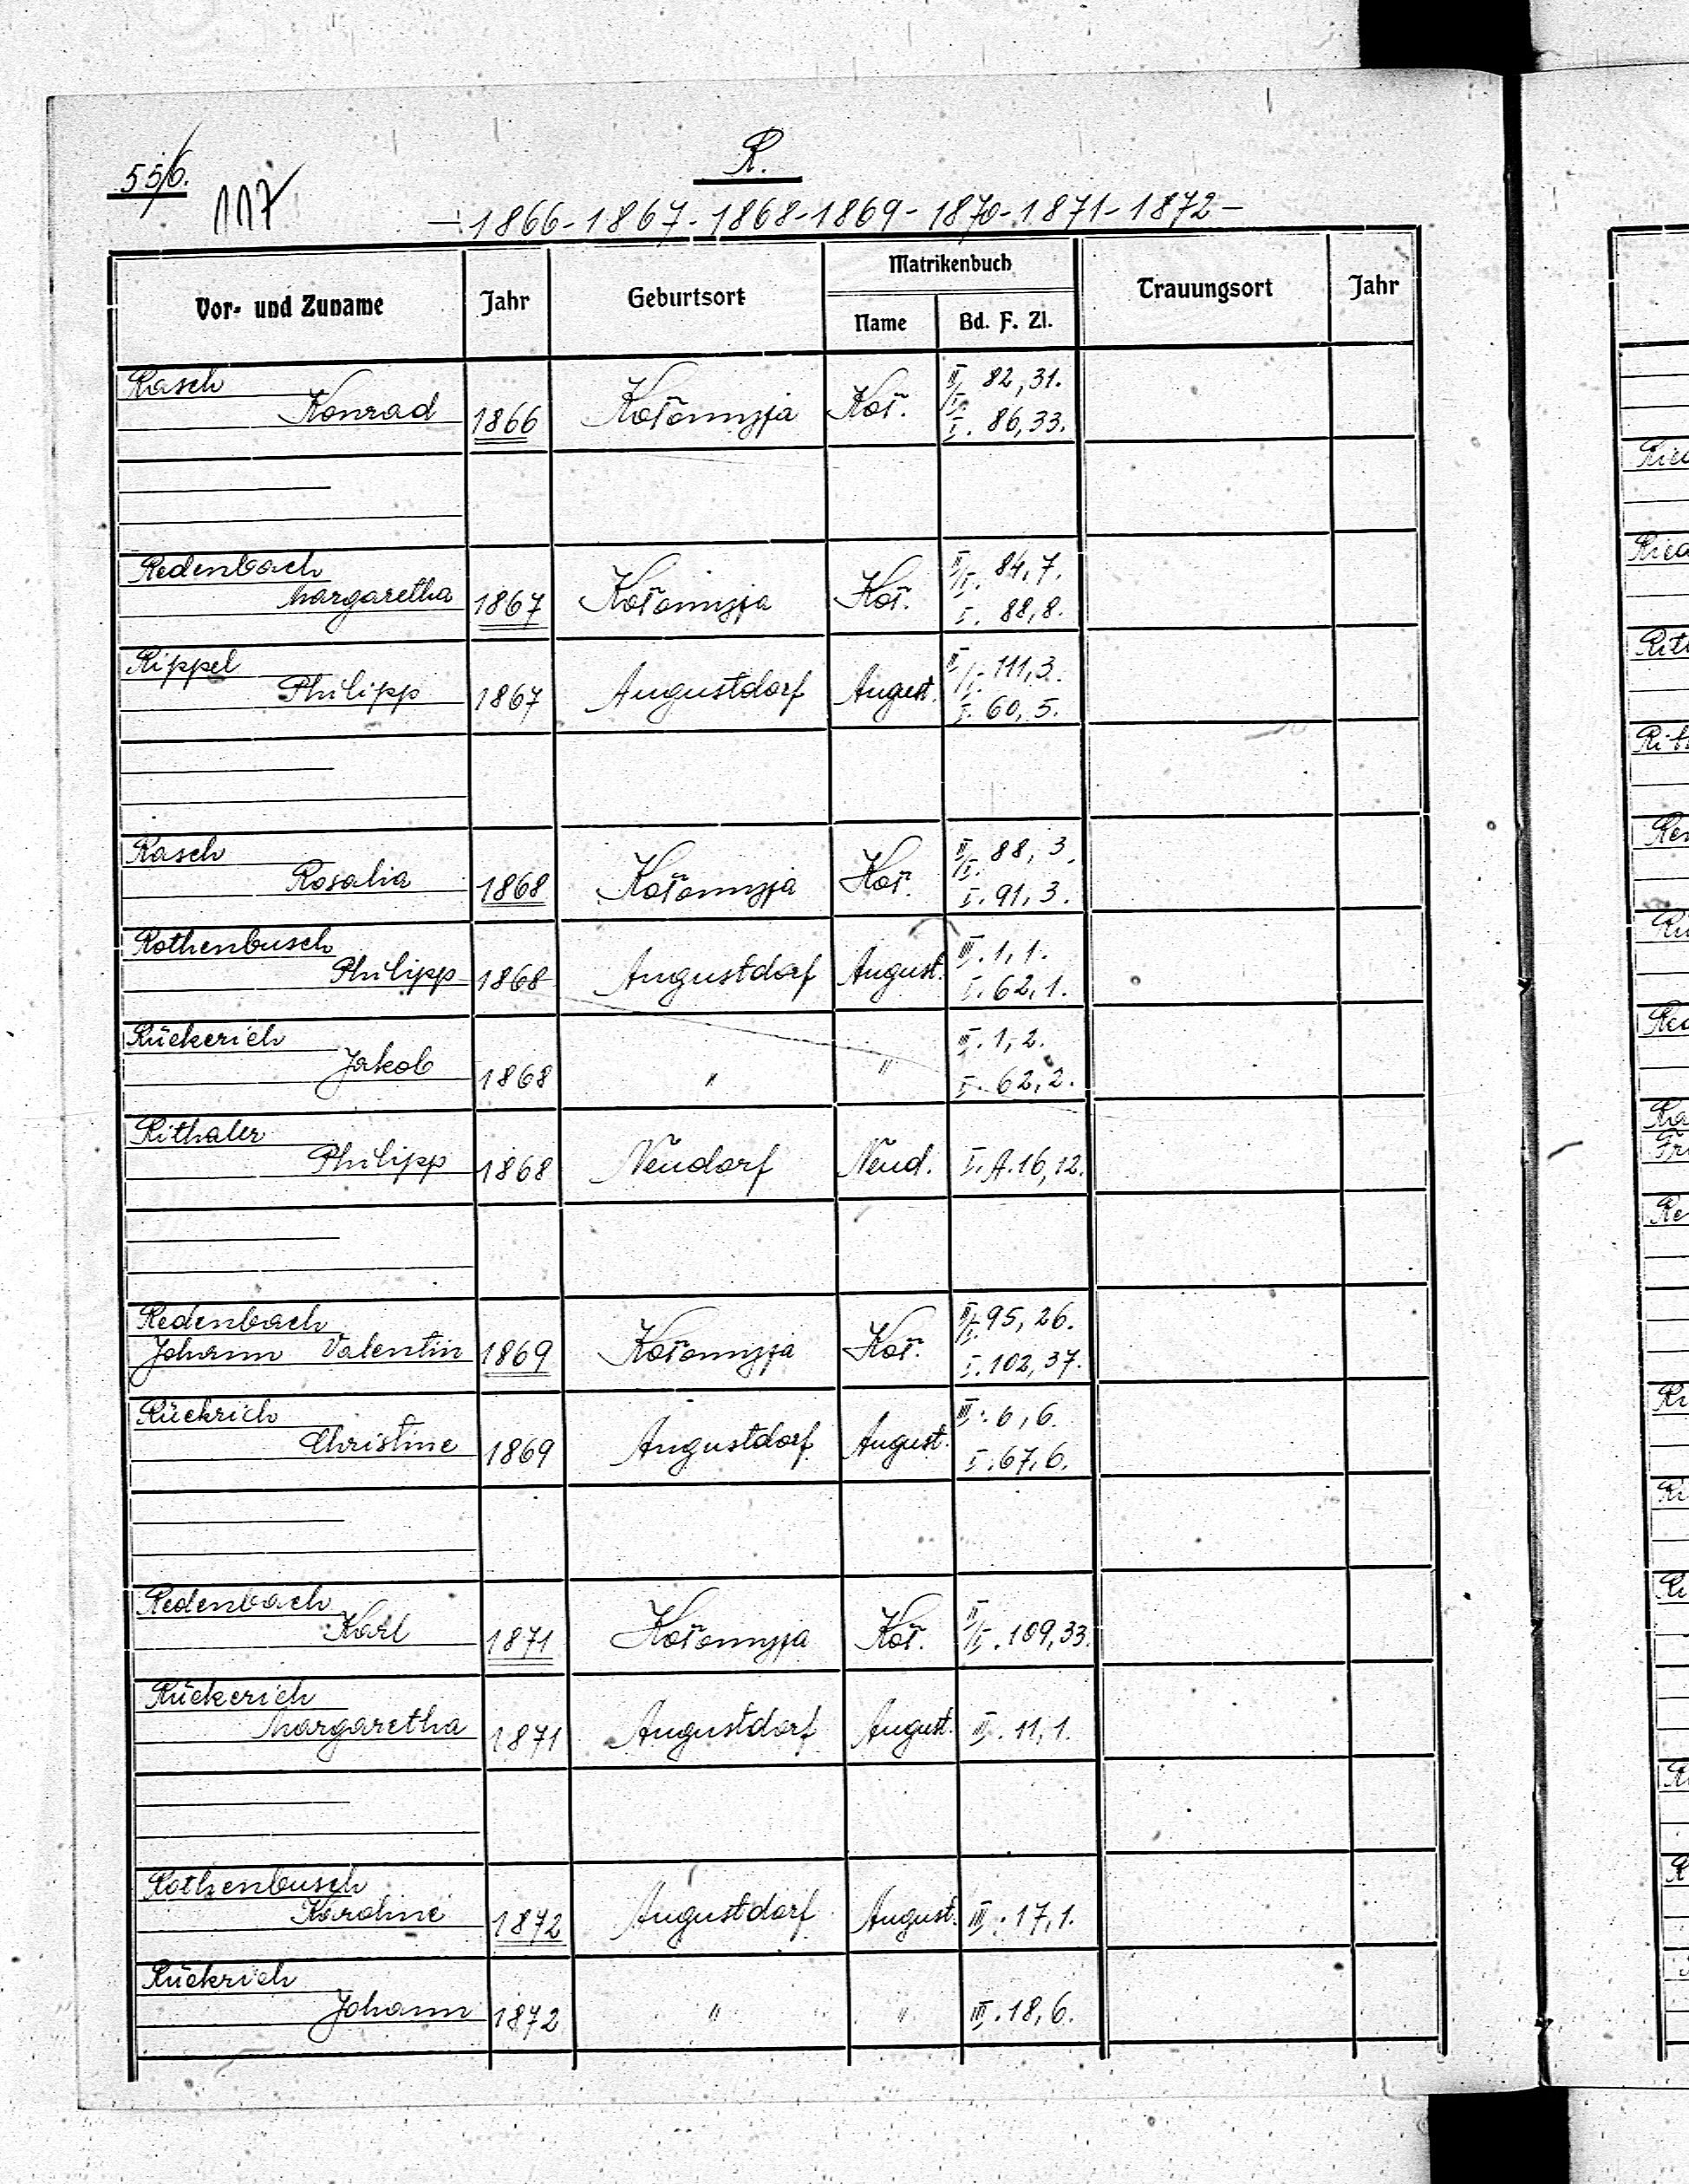 556.
117
R.
- 1866 - 1867 - 1868 - 1869 - 1870 - 1871 - 1872 -
Vor- und Zuname Jahr Geburtsort Matrikenbuch Trauungsort Jahr
Name Bd. F. Zl.
Rasch II/I. 82, 31.
Konrad 1866 Kołomyja Koł. I. 86, 33.
Redenbach II/I. 84, 7.
Margaretha 1867 Kołomyja Koł. I. 88, 8.
Rippel II/I. 111, 3.
Philipp 1867 Augustdorf August. I. 60, 5.
Rasch II/I. 88, 3.
Rosalia 1868 Kołomyja Koł. I. 91, 3.
Rothenbusch III. 1, 1.
Philipp 1868 Augustdorf August. I. 62, 1.
Rückerich III. 1, 2.
Jakob 1868 " " I. 62, 2.
Rithaler
Philipp 1868 Neudorf Neud. I. A. 16, 12.
Redenbach II/I. 95, 26.
Johann Valentin 1869 Kołomyja Koł. I. 102, 37.
Rückrich III. 6, 6.
Christine 1869 Augustdorf August. I. 67, 6.
Redenbach
Karl 1871 Kołomyja Koł. II/I. 109, 33.
Rückerich
Margaretha 1871 Augustdorf August. III. 11, 1.
Rothenbusch
Karoline 1872 Augustdorf August. III. 17, 1.
Rückrich
Johann 1872 " " III. 18, 6.